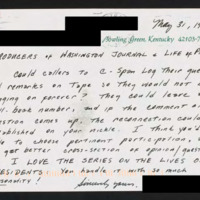 May 31, 19
Bowling Green, Kentucky 42103-7
PRODUCERS OF WASHINGTON JOURNAL & LIFE OF P
COULD CALLERS TO C-SPAN LOG THEIR QUE
REMARKS ON TAPE SO THEY WOULD NOT
NGING ON FOREVER? THEY COULD LEAVE
BOOK NUMBER, AND IF THE COMMENT O
STION COMES UP, THE RECONNECTION COULD
ESTABLISHED ON YOUR NICKLE. I THINK YOU'D
TO CHOOSE PERTINENT PARTICIPATION,
GET BETTER CROSS-SECTION OF OPINION/QUEST
I LOVE THE SERIES ON THE LIVES O
ESIDENTS. YOU HANDLE IT WITH SO MUCH
Sincerely yours,